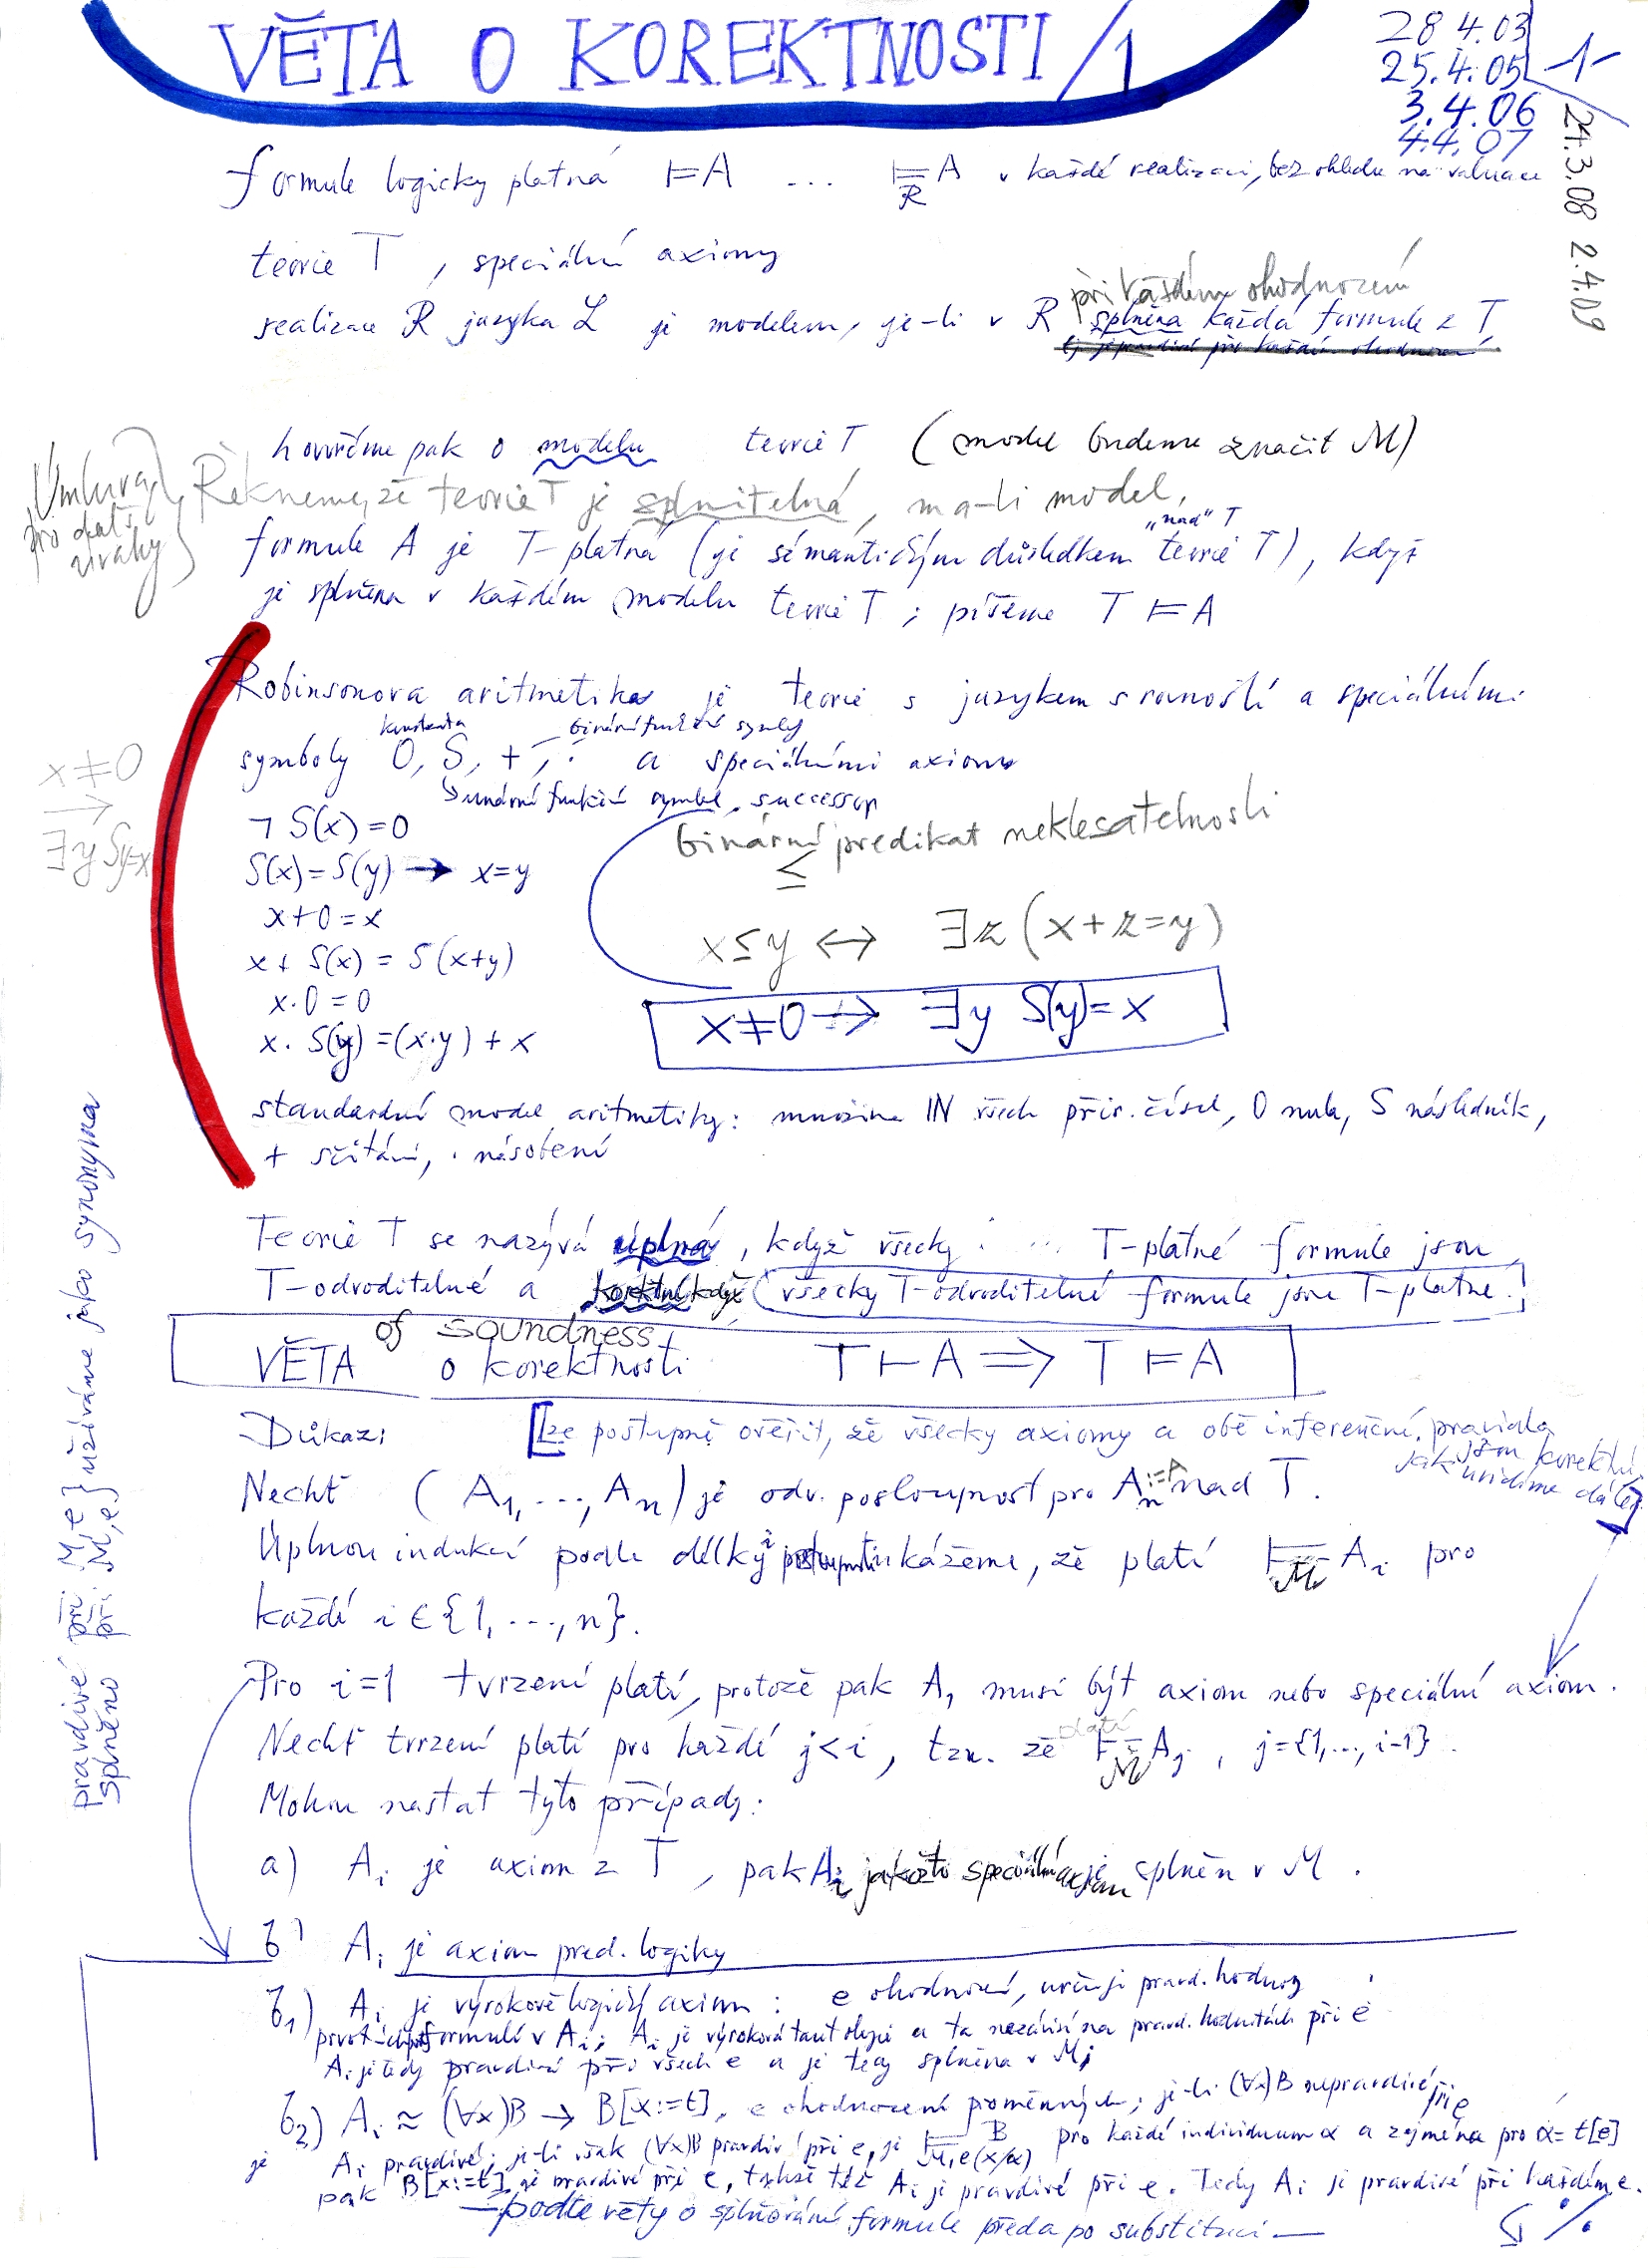 VĚTA O KOREKTNOSTI /1
28 4.03
25.4.05 -1-
3.4.06
4.4.07
24.3.08 2.4.09
formule logicky platná ⊨A ... ⊨A v každé realizaci, bez ohledu na valuace
R
teorie T, speciální axiomy
při každém ohodnocení
realizace R jazyka L je modelem, je-li v R splněna každá formule z T,
hovoříme pak o modelu teorie T (model budeme značit M)
Úmluva
pro další
úvahy
Řekneme, že teorie T je splnitelná, má-li model,
„nad“ T
formule A je T-platná (je sémantickým důsledkem teorie T), když
je splněna v každém modelu teorie T; píšeme T ⊨ A
Robinsonova aritmetika je teorie s jazykem s rovností a speciálními
konstanta binární funkční symboly
symboly 0, S, +, · a speciálními axiomy
↳ unární funkční symbol, successor
x≠0
→
∃y Sy=x
¬ S(x)=0
binární predikát neklesatelnosti
≤
S(x)=S(y) → x=y
x+0=x
x≤y ↔ ∃z(x+z=y)
x+S(x) = S(x+y)
x·0=0
x≠0 → ∃y S(y)=x
x·S(y)=(x·y)+x
standardní model aritmetiky: množina IN všech přir. čísel, 0 nula, S následník,
+ sčítání, · násobení
Teorie T se nazývá úplná, když všecky ... T-platné formule jsou
T-odvoditelné a korektní když (všecky T-odvoditelné formule jsou T-platné.)
of soundness
VĚTA o korektnosti T⊢A ⟹ T⊨A
Důkaz: [lze postupně ověřit, že všecky axiomy a obě inferenční pravidla
jsou korektní,
jak uvidíme dále]
Nechť (A₁, ..., Aₙ) je odv. posloupnost pro Aₙ:=A nad T.
Úplnou indukcí podle délky i ukážeme, že platí ⊨Aᵢ pro
M
každé i∈{1, ..., n}.
Pro i=1 tvrzení platí, protože pak A₁ musí být axiom nebo speciální axiom.
platí
Nechť tvrzení platí pro každé j<i, tzn. že ⊨Aⱼ, j={1,..., i-1}.
M
Mohou nastat tyto případy:
a) Aᵢ je axiom z T, pak Aᵢ jakožto speciální axiom je splněn v M.
b) Aᵢ je axiom pred. logiky
b₁) Aᵢ je výrokově logický axiom: e ohodnocení, určuje pravd. hodnoty
formulí v Aᵢ; Aᵢ je výroková tautologie a ta nezávisí na pravd. hodnotách při e
Aᵢ je tedy pravdivá při všech e a je tedy splněna v M;
b₂) Aᵢ ≈ (∀x)B → B[x:=t], e ohodnocení proměnných; je-li (∀x)B nepravdivé při e
je Aᵢ pravdivé; je-li však (∀x)B pravdivé při e, je ⊨B pro každé individuum α a zejména pro α=t[e]
M,e(x/α)
pak B[x:=t] je pravdivé při e, takže též Aᵢ je pravdivé při e. Tedy Aᵢ je pravdivé při každém e.
—podle věty o splňování formule před a po substituci—
%
pravdivé při M,e } užíváme jako synonyma
splněno při M,e